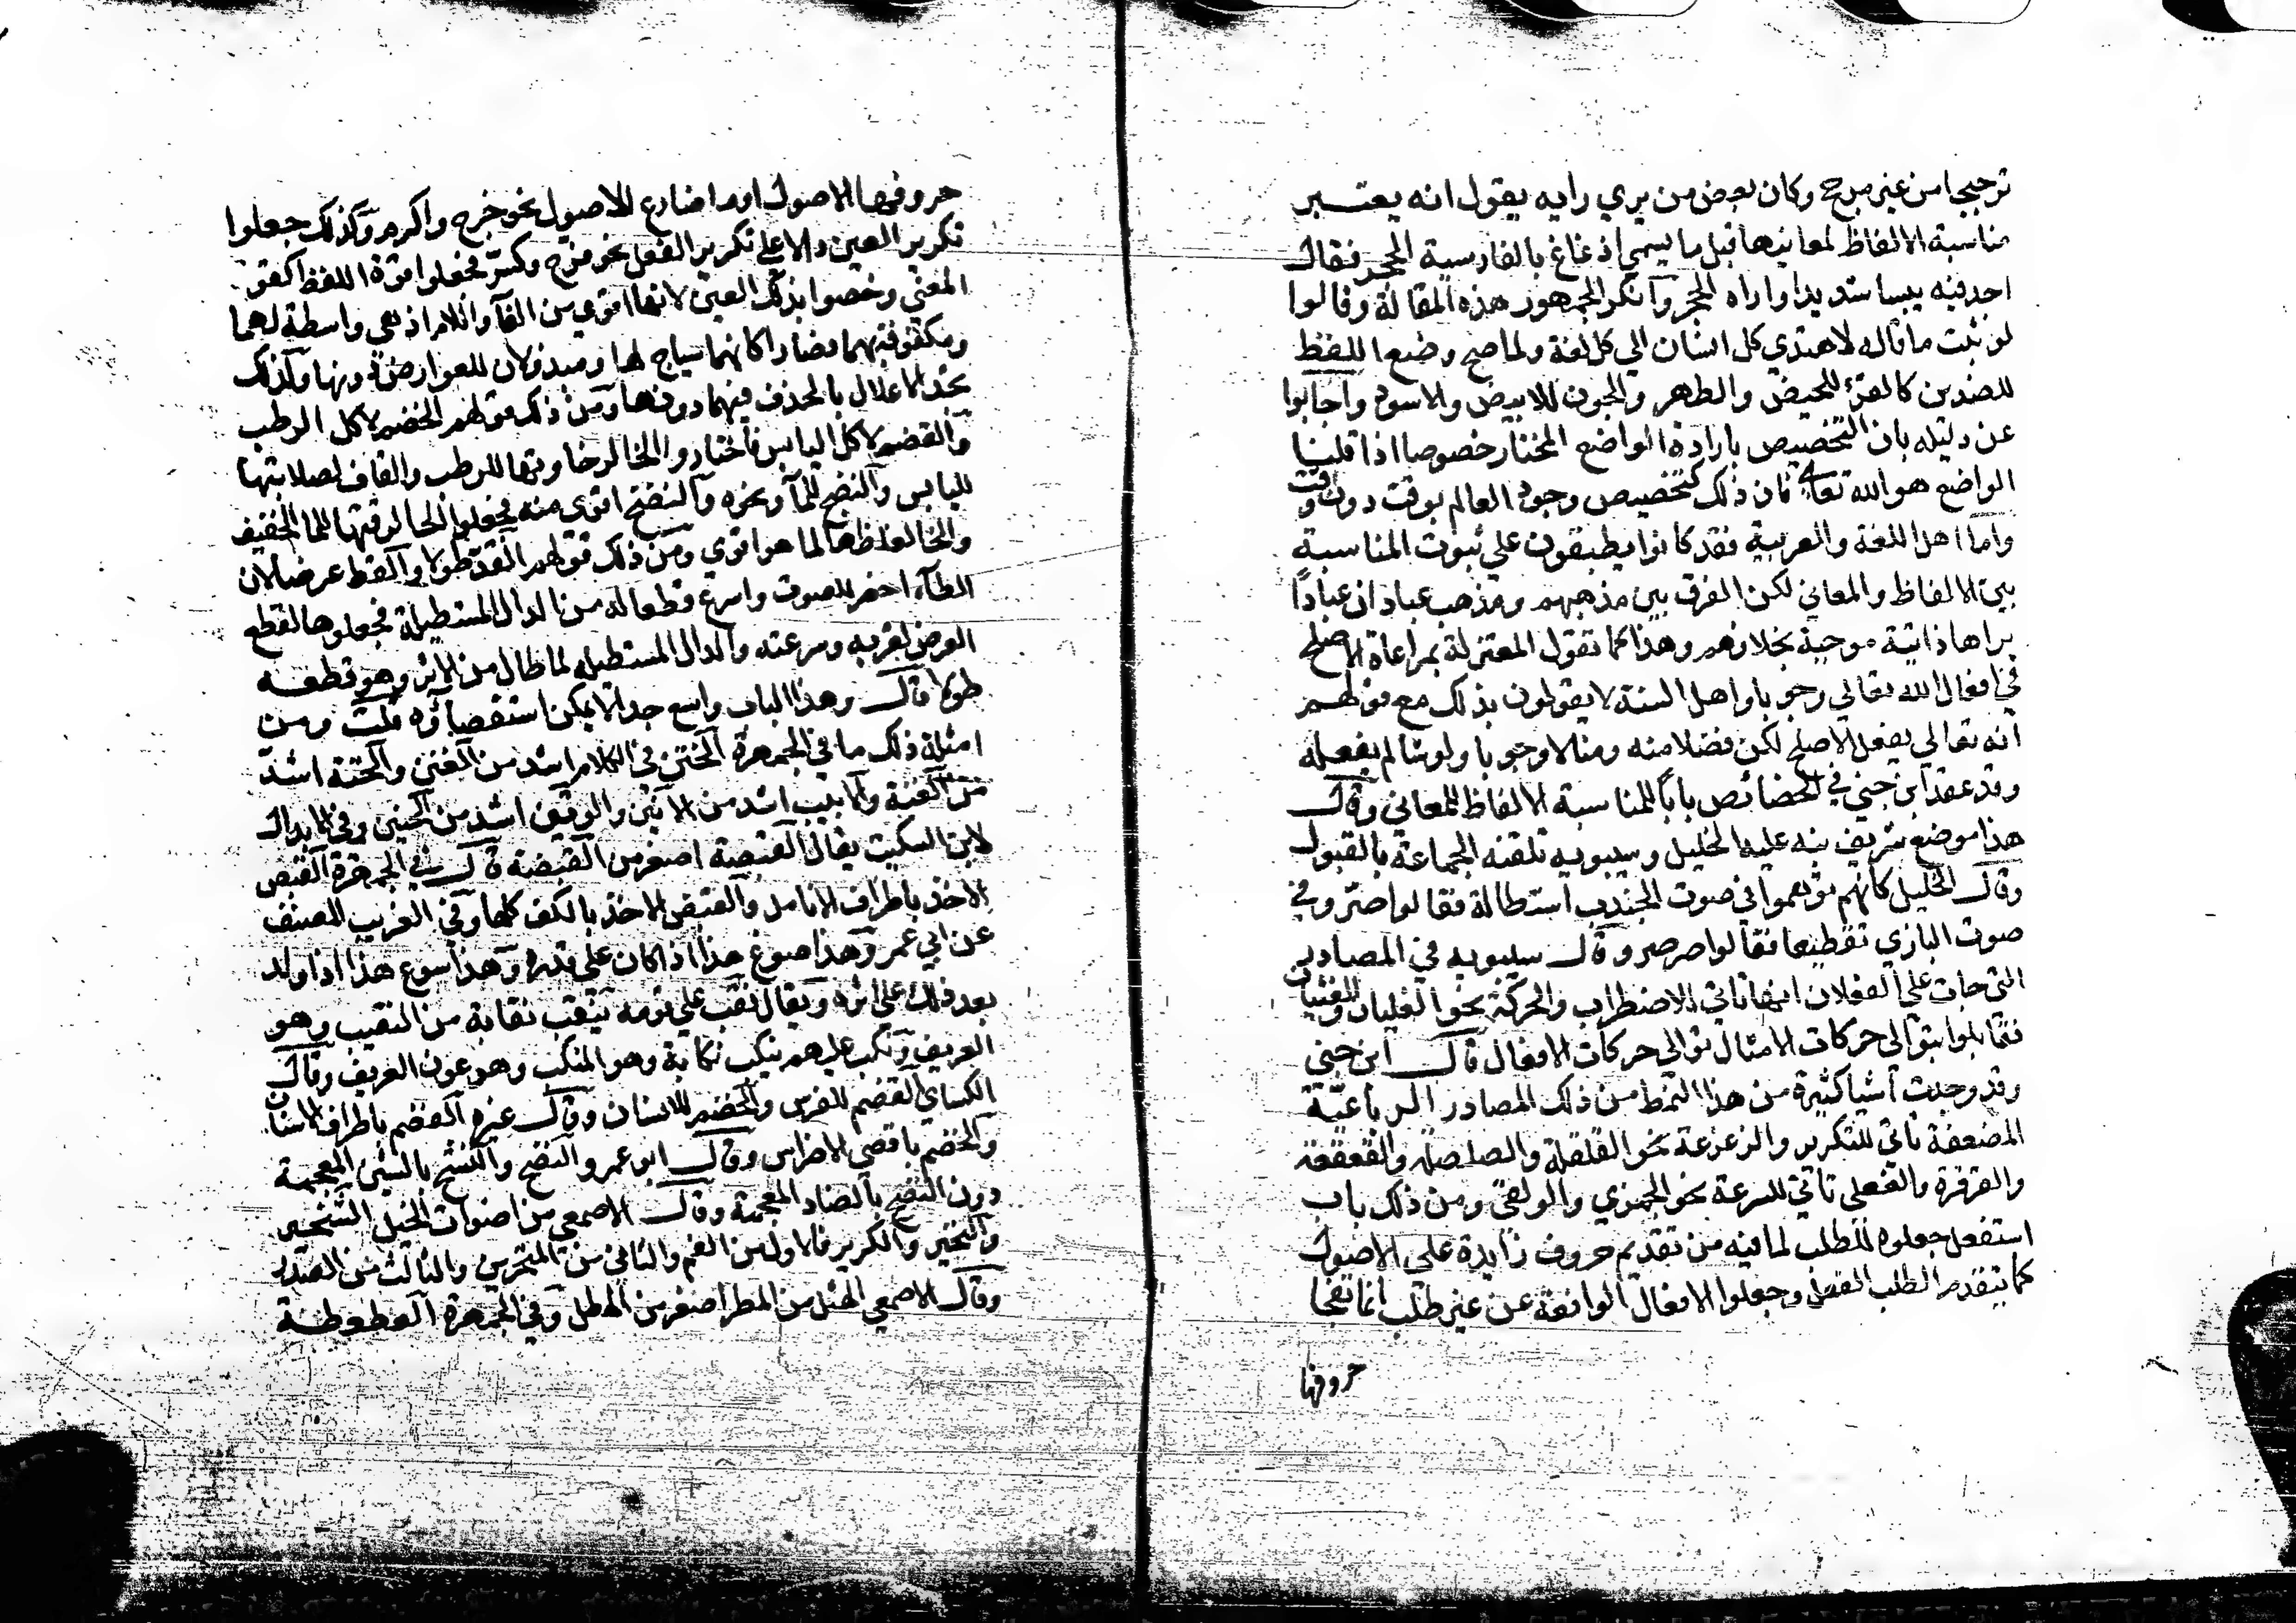 ترجيحا من غير مرجح وكان بعض من يري رايه يقول انه يعتبر
مناسبة الالفاظ لمعانيها قيل ما يسمي اذغاغ بالفارسية الحجر فقال
اجد فيه يبسا شديدا واراه الحجر وانكر الجمهور هذه المقالة وقالوا
لو ثبت ما قاله لاهتدي كل انسان الي كل لغة ولما صح وضع اللفظ
للضدين كالقرء للحيض والطهر والجون للابيض والاسود واجابوا
عن دليله بان التخصيص بارادة الواضع المختار خصوصا اذا قلنا
الواضع هو الله تعالي فان ذلك كتخصيص وجود العالم بوقت دون وقت
واما اهل اللغة والعربية فقد كادوا يطبقون علي ثبوت المناسبة
بين الالفاظ والمعاني لكن الفرق بين مذهبهم ومذهب عباد ان عبادا
يراها ذاتية موجبة بخلافهم وهذا كما تقول المعتزلة بمراعاة الاصلح
في افعال الله تعالي وجوبا واهل السنة لا يقولون بذلك مع قولهم
انه تعالي يفعل الاصلح لكن فضلا منه ومنا لا وجوبا ولو شا لم يفعله
وقد عقد ابن جني في الخصائص بابا لمناسبة الالفاظ للمعاني وقال
هذا موضع شريف نبه عليه الخليل وسيبويه تلقته الجماعة بالقبول
وقال الخليل كانهم توهموا في صوت الجندب استطالة فقالوا صر وفي
صوت البازي تقطيعا فقالوا صرصر وقال سيبويه في المصادر
التي جات علي الفعلان انها تاتي للاضطراب والحركة نحو الغليان والغثيان
فقابلوا بتوالي حركات الامثال توالي حركات الافعال قال ابن جني
وقد وجدت اشيا كثيرة من هذا النمط من ذلك المصادر الرباعية
المضعفة تاتي للتكرير والزعزعة نحو القلقلة والصلصلة والقعقعة
والقرقرة والفعلى تاتي للسرعة نحو الجمزي والولقى ومن ذلك باب
استفعل جعلوه للطلب لما فيه من تقدم حروف زايدة على الاصول
كما يتقدم الطلب الفعل وجعلوا الافعال الواقعة عن غير طلب انما تفجا
حروفها
حروفها الاصول او ما ضارع الاصول نحو خرج واكرم وكذلك جعلوا
تكرير العين دالا علي تكرير الفعل نحو فرح وكسر فجعلوا قوة اللفظ لقوة
المعنى وخصوا بذلك العين لانها اقوي من الفآ واللام اذ هي واسطة لهما
ومكنوفة بهما فصارا كانهما سياج لها ومبذولان للعوارض دونها ولذلك
تجد الاعلال بالحذف فيهما دونها ومن ذلك قولهم الخضم لاكل الرطب
والقضم لاكل اليابس فاختاروا الخا لرخاوتها للرطب والقاف لصلابتها
لليابس والنضح للمآ ونحوه والنضخ اقوى منه فجعلوا الحا لرقتها للما الخفيف
والخا لغلظها لما هو اقوي ومن ذلك قولهم القد طولا والقط عرضا لان
الطآء احصر للصوت واسرع قطعا له من الدال المستطيلة فجعلوها لقطع
العرض لقربه وسرعته والدال المستطيلة لما طال من الاثر وهو قطعه
طولا قال وهذا الباب واسع جدا لا يمكن استقصاؤه قلت ومن
امثلة ذلك ما في الجمهرة الخنن في الكلام اشد من الغنن والخنة اشد
من الغنة والانيت اشد من الانين والرنين اشد من الحنين وفي الابدال
لابن السكيت يقال القبصة اصغر من القبضة قال في الجمهرة القبص
الاخذ باطراف الانامل والقبض الاخذ بالكف كلها وفي الغريب المصنف
عن ابي عمرو هذا صوغ هذا اذا كان علي قدره وهذا سوغ هذا اذا ولد
بعد ذلك علي اثره ويقال نقب علي قومه ينقب نقابة من النقيب وهو
العريف ونكب عليهم ينكب نكابة وهو المنكب وهو عون العريف وقال
الكسائي القضم للفرس والخضم للانسان وقال غيره القضم باطراف الاسنان
والخضم باقصي الاضراس وقال ابو عمرو النضح والنشح بالشين المعجمة
دون النضح بالضاد المعجمة وقال الاصمعي من اصوات الخيل الشخير
والنخير والكرير فالاول من الفم والثاني من المنخرين والثالث من الصدر
وقال الاصمعي الهتل من المطر اصغر من الهطل وفي الجمهرة العطعطة